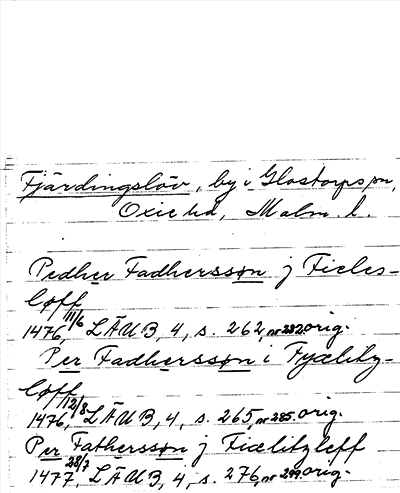 Fjärdingslöv, by i Glostorps sn,
Oxie hd, Malm. l.
Pedher Fadhersson j Fieles-
løff
1476, 11/6 LÄUB, 4, s. 262, nr 282. orig.
Per Fadhersson i Fyælitz-
løff
1476, 12/8 LÄUB, 4, s. 265, nr 285. orig.
Per Fathersson j Fiælitzleff
1477, 28/7 LÄUB, 4, s. 276, nr 299. orig.